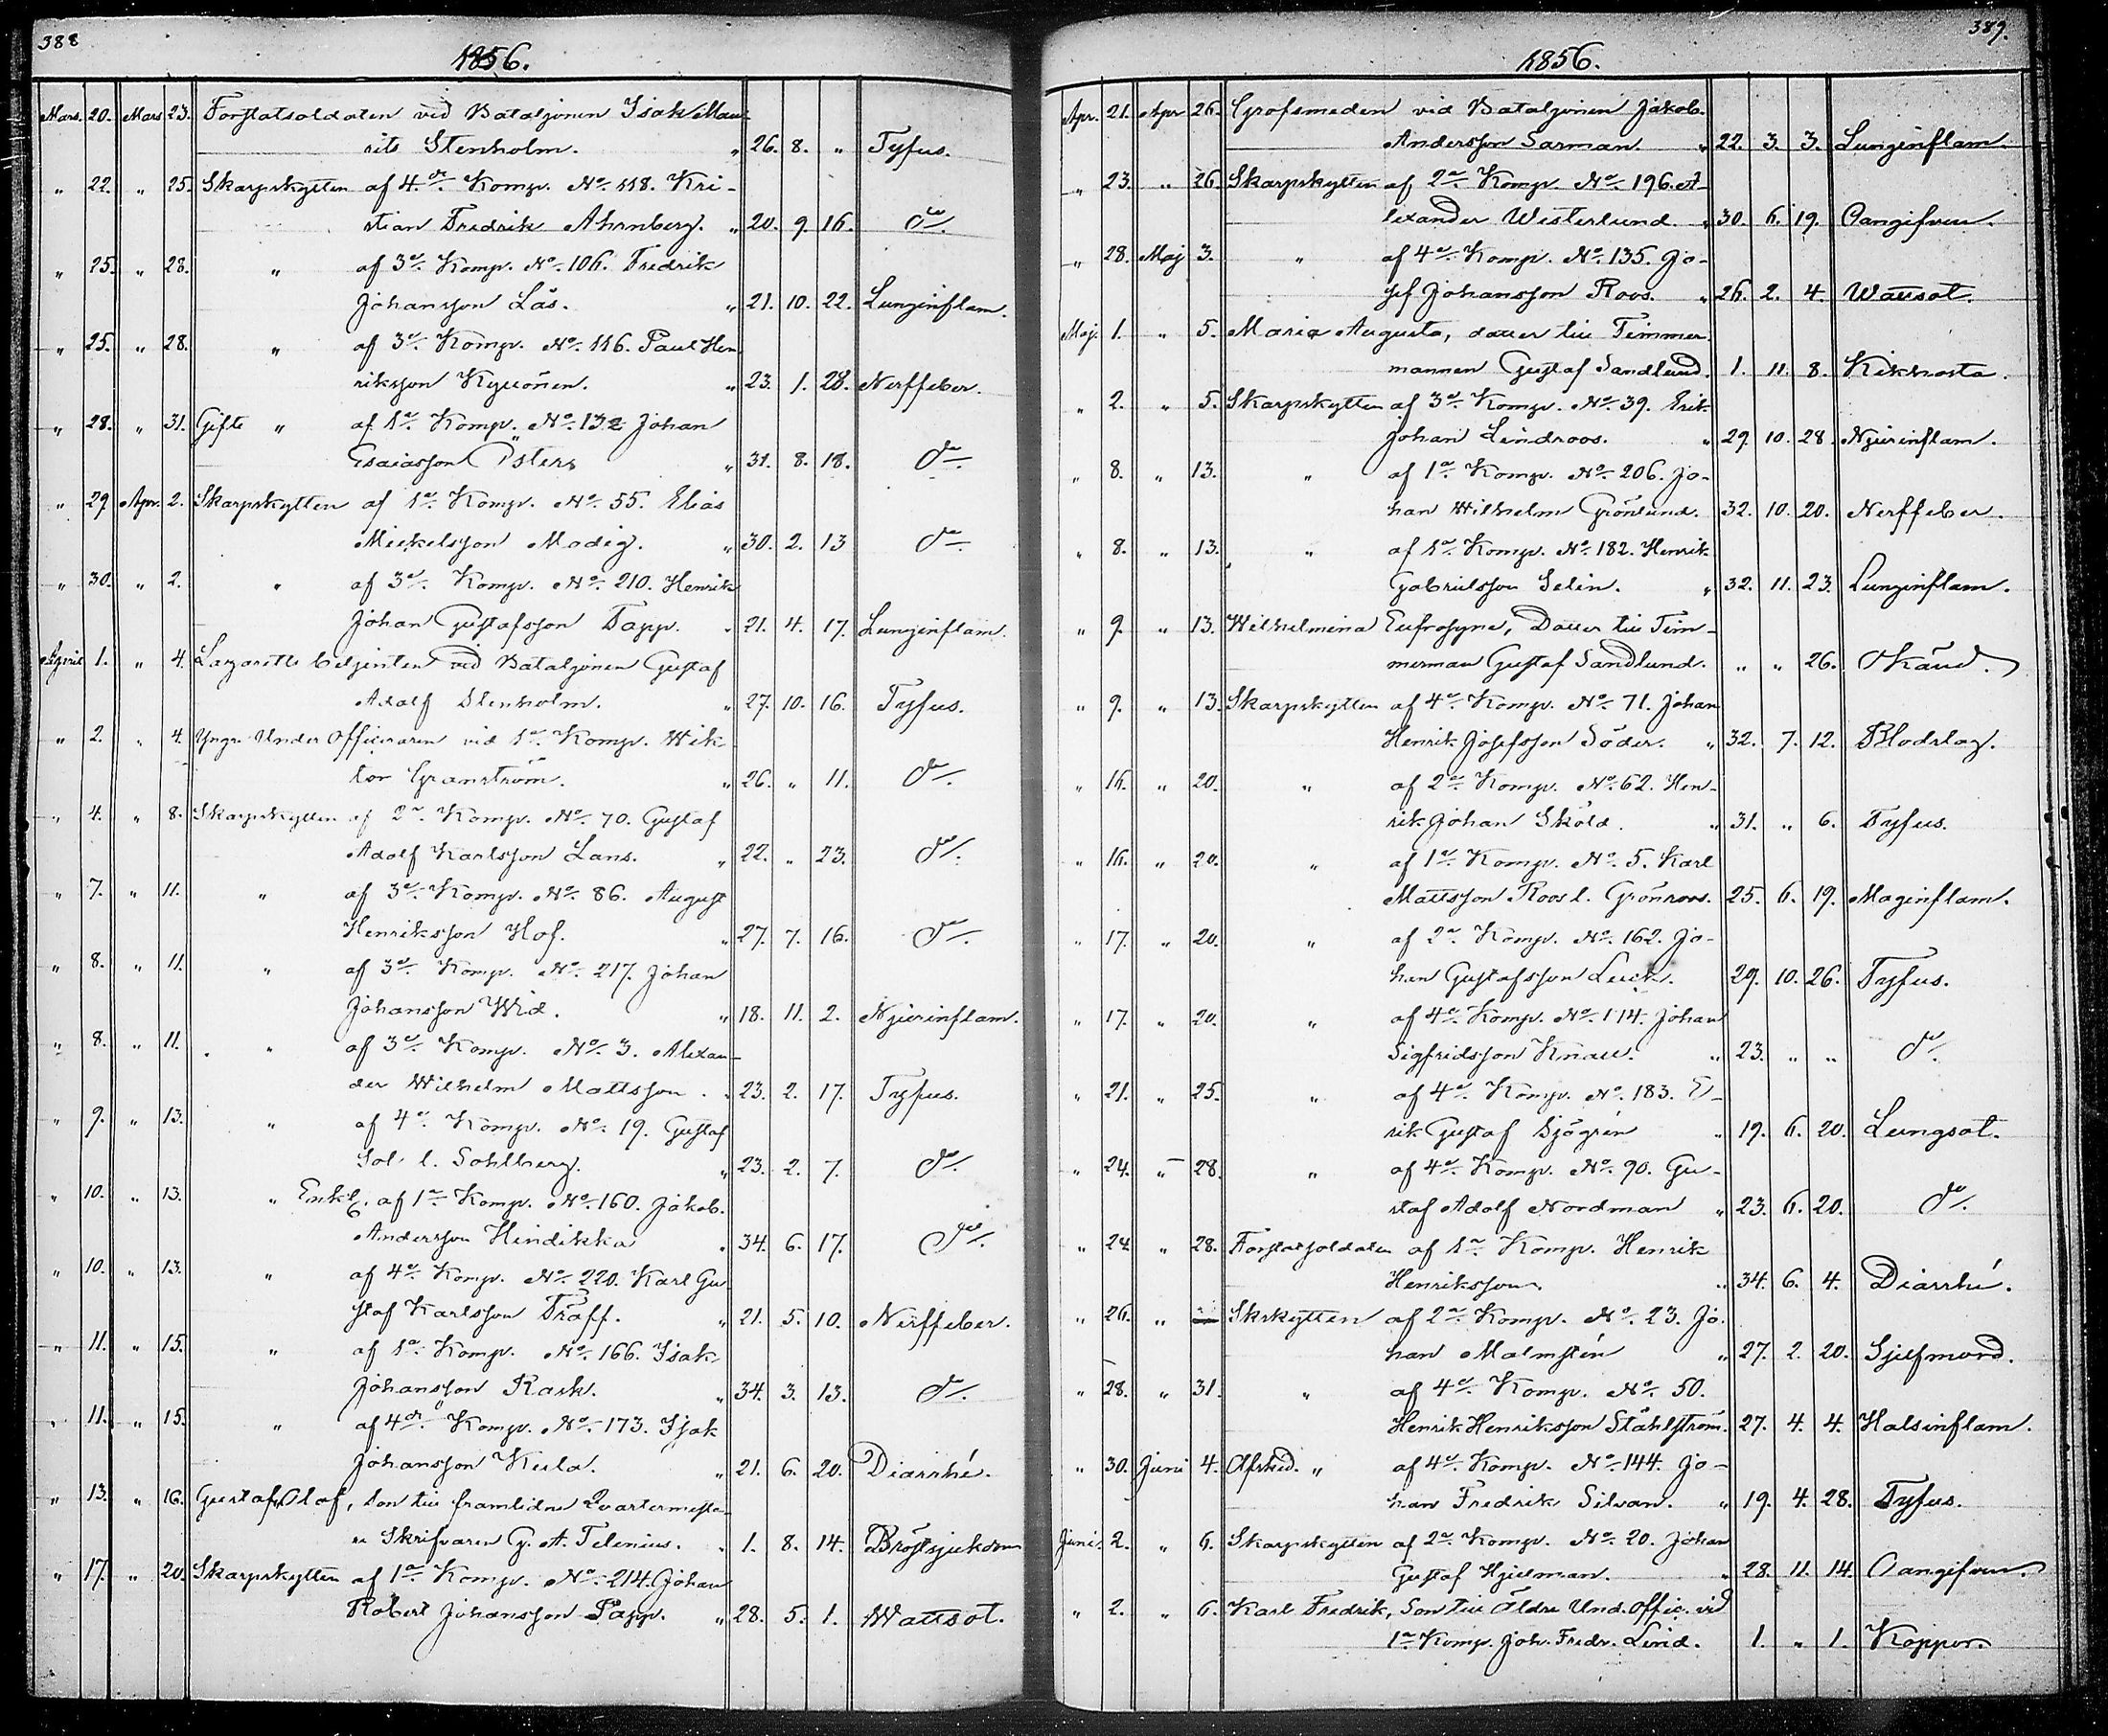 388
1856.
Mars. 20. Mars 23. Forstatsoldaten vid Bataljonen Isak Mau-
rits Stenholm. " 26. 8. " Tyfus.
" 22. " 25. Skarpskytten af 4de Komp. No 118. Kri-
stian Fredrik Ahrnberg. " 20. 9. 16. do
" 25. " 28. " af 3e Komp. No 106. Fredrik
Johansson Lås. " 21. 10. 22. Lunginflam.
" 25. " 28. " af 3e Komp. No 116. Paul Hen
riksson Kyllönen. " 23. 1. 28. Nerffeber.
" 28. " 31. Gifte " af 1a Komp. No 132 Johan
Esaiasson Öster " 31. 8. 18. do
" 29. Apr. 2. Skarpskytten af 1a Komp. No 55. Elias
Mickelsson Modig. " 30. 2. 13 do
" 30. " 2. " af 3e Komp. No 210. Henrik
Johan Gustafsson Tapp. " 21. 4. 17. Lunginflam.
April 1. " 4. Lazaretts betjenten vid Bataljonen Gustaf
Adolf Stenholm. " 27. 10. 16. Tyfus.
" 2. " 4. Yngre Under Officeraren vid 1a Komp. Wik
tor Granström. " 26. " 11. do
" 4. " 8. Skarpskytten af 2a Komp. No 70. Gustaf
Adolf Karlsson Lans. " 22. " 23. do
" 7. " 11. " af 3e Komp. No 86. August
Henriksson Hof. " 27. 7. 16. do
" 8. " 11. " af 3e Komp. No 217. Johan
Johansson Wid. " 18. 11. 2. Njurinflam.
" 8. " 11. " af 3e Komp. No 3. Alexan-
der Wilhelm Mattsson. " 23. 2. 17. Tyfus.
" 9. " 13. " af 4e Komp. No 19. Gustaf
Sol. l. Sohlberg. " 23. 2. 7. do
" 10. " 13. " Enkl. af 1a Komp. No 160. Jakob.
Andersson Hindikka " 34. 6. 17. do
" 10. " 13. " af 4e Komp. No 220. Karl Gu
staf Karlsson Träff. " 21. 5. 10. Nerffeber.
" 11. " 15. " af 1a Komp. No 166. Isak
Johansson Rask. " 34. 3. 13. do
" 11. " 15. " af 4de Komp. No 173. Isak
Johansson Kula. " 21. 6. 20. Diarrhé.
" 13. " 16. Gustaf Olof, son till framlidne Qvartermesta-
re Skrifvaren G. A. Telenius. " 1. 8. 14. Bröstsjukdom
" 17. " 20. Skarpskytten af 1a Komp. No 214. Johan
Robert Johansson Papp. " 28. 5. 1. Wattsot.
389.
1856.
Apr. 21. Apr 26. Grofsmeden vid Bataljonen Jakob.
Andersson Sarman. " 22. 3. 3. Lunginflam.
" 23. " 26 Skarpskytten af 2a Komp. No 196. A-
lexander Westerlund. " 30. 6. 19. Oangifven.
" 28. Maj 3. " af 4e Komp. No 135. Jo-
sef Johansson Roos. " 26. 2. 4. Wattsot.
Maj. 1. " 5. Maria Augusta, dotter till Timmer
mannen Gustaf Sandlund. 1. 11. 8. Kikhosta.
" 2. " 5. Skarpskytten af 3e Komp. No 39. Erik
Johan Lindroos. " 29. 10. 28. Njurinflam.
" 8. " 13. " af 1a Komp. No 206. Jo-
han Wilhelm Grönlund. 32. 10. 20. Nerffeber.
" 8. " 13. " af 1a Komp. No 182. Henrik
Gabrielsson Selin. " 32. 11. 23. Lunginflam.
" 9. " 13. Wilhelmina Eufrosyne, Dotter till Tim-
merman Gustaf Sandlund. " " 26. Okänd.
" 9. " 13. Skarpskytten af 4e Komp. No 71. Johan
Henrik Josefsson Söder. " 32. 7. 12. Blodslag.
" 16. " 20. " af 2a Komp. No 62. Hen-
rik Johan Sköld. " 31. " 6. Tyfus.
" 16. " 20. " af 1a Komp. No 5. Karl
Mattsson Roos l. Grönroos. 25. 6. 19. Maginflam.
" 17. " 20. " af 2a Komp. No 162. Jo-
han Gustafsson Luck. 29. 10. 26. Tyfus.
" 17. " 20. " af 4e Komp. No 114. Johan
Sigfridsson Knall. " 23. " " do
" 21. " 25. " af 4e Komp. No 183. E-
rik Gustaf Sjögrén " 19. 6. 20. Lungsot.
" 24. " 28. " af 4e Komp. No 90. Gu-
staf Adolf Nordman " 23. 6. 20. do
" 24. " 28. Forstatsoldaten af 1a Komp. Henrik
Henriksson. " 34. 6. 4. Diarrhé.
" 26. " — Skrskytten af 2a Komp. No 23. Jo.
han Malmstén " 27. 2. 20. Sjelfmord.
" 28. " 31. " af 4e Komp. No 50.
Henrik Henriksson Ståhlström. 27. 4. 4. Halsinflam.
" 30. Juni 4. Afsked. " af 4e Komp. No 144. Jo-
han Fredrik Silvan. " 19. 4. 28. Tyfus.
Juni. 2. " 6. Skarpskytten af 2a Komp. No 20. Johan
Gustaf Hjelman. " 28. 11. 14. Oangifven.
" 2. " 6. Karl Fredrik, Son till Äldre Und. Offic. vid
1a Komp. Joh. Fredr. Lind. 1. " 1. Koppor.